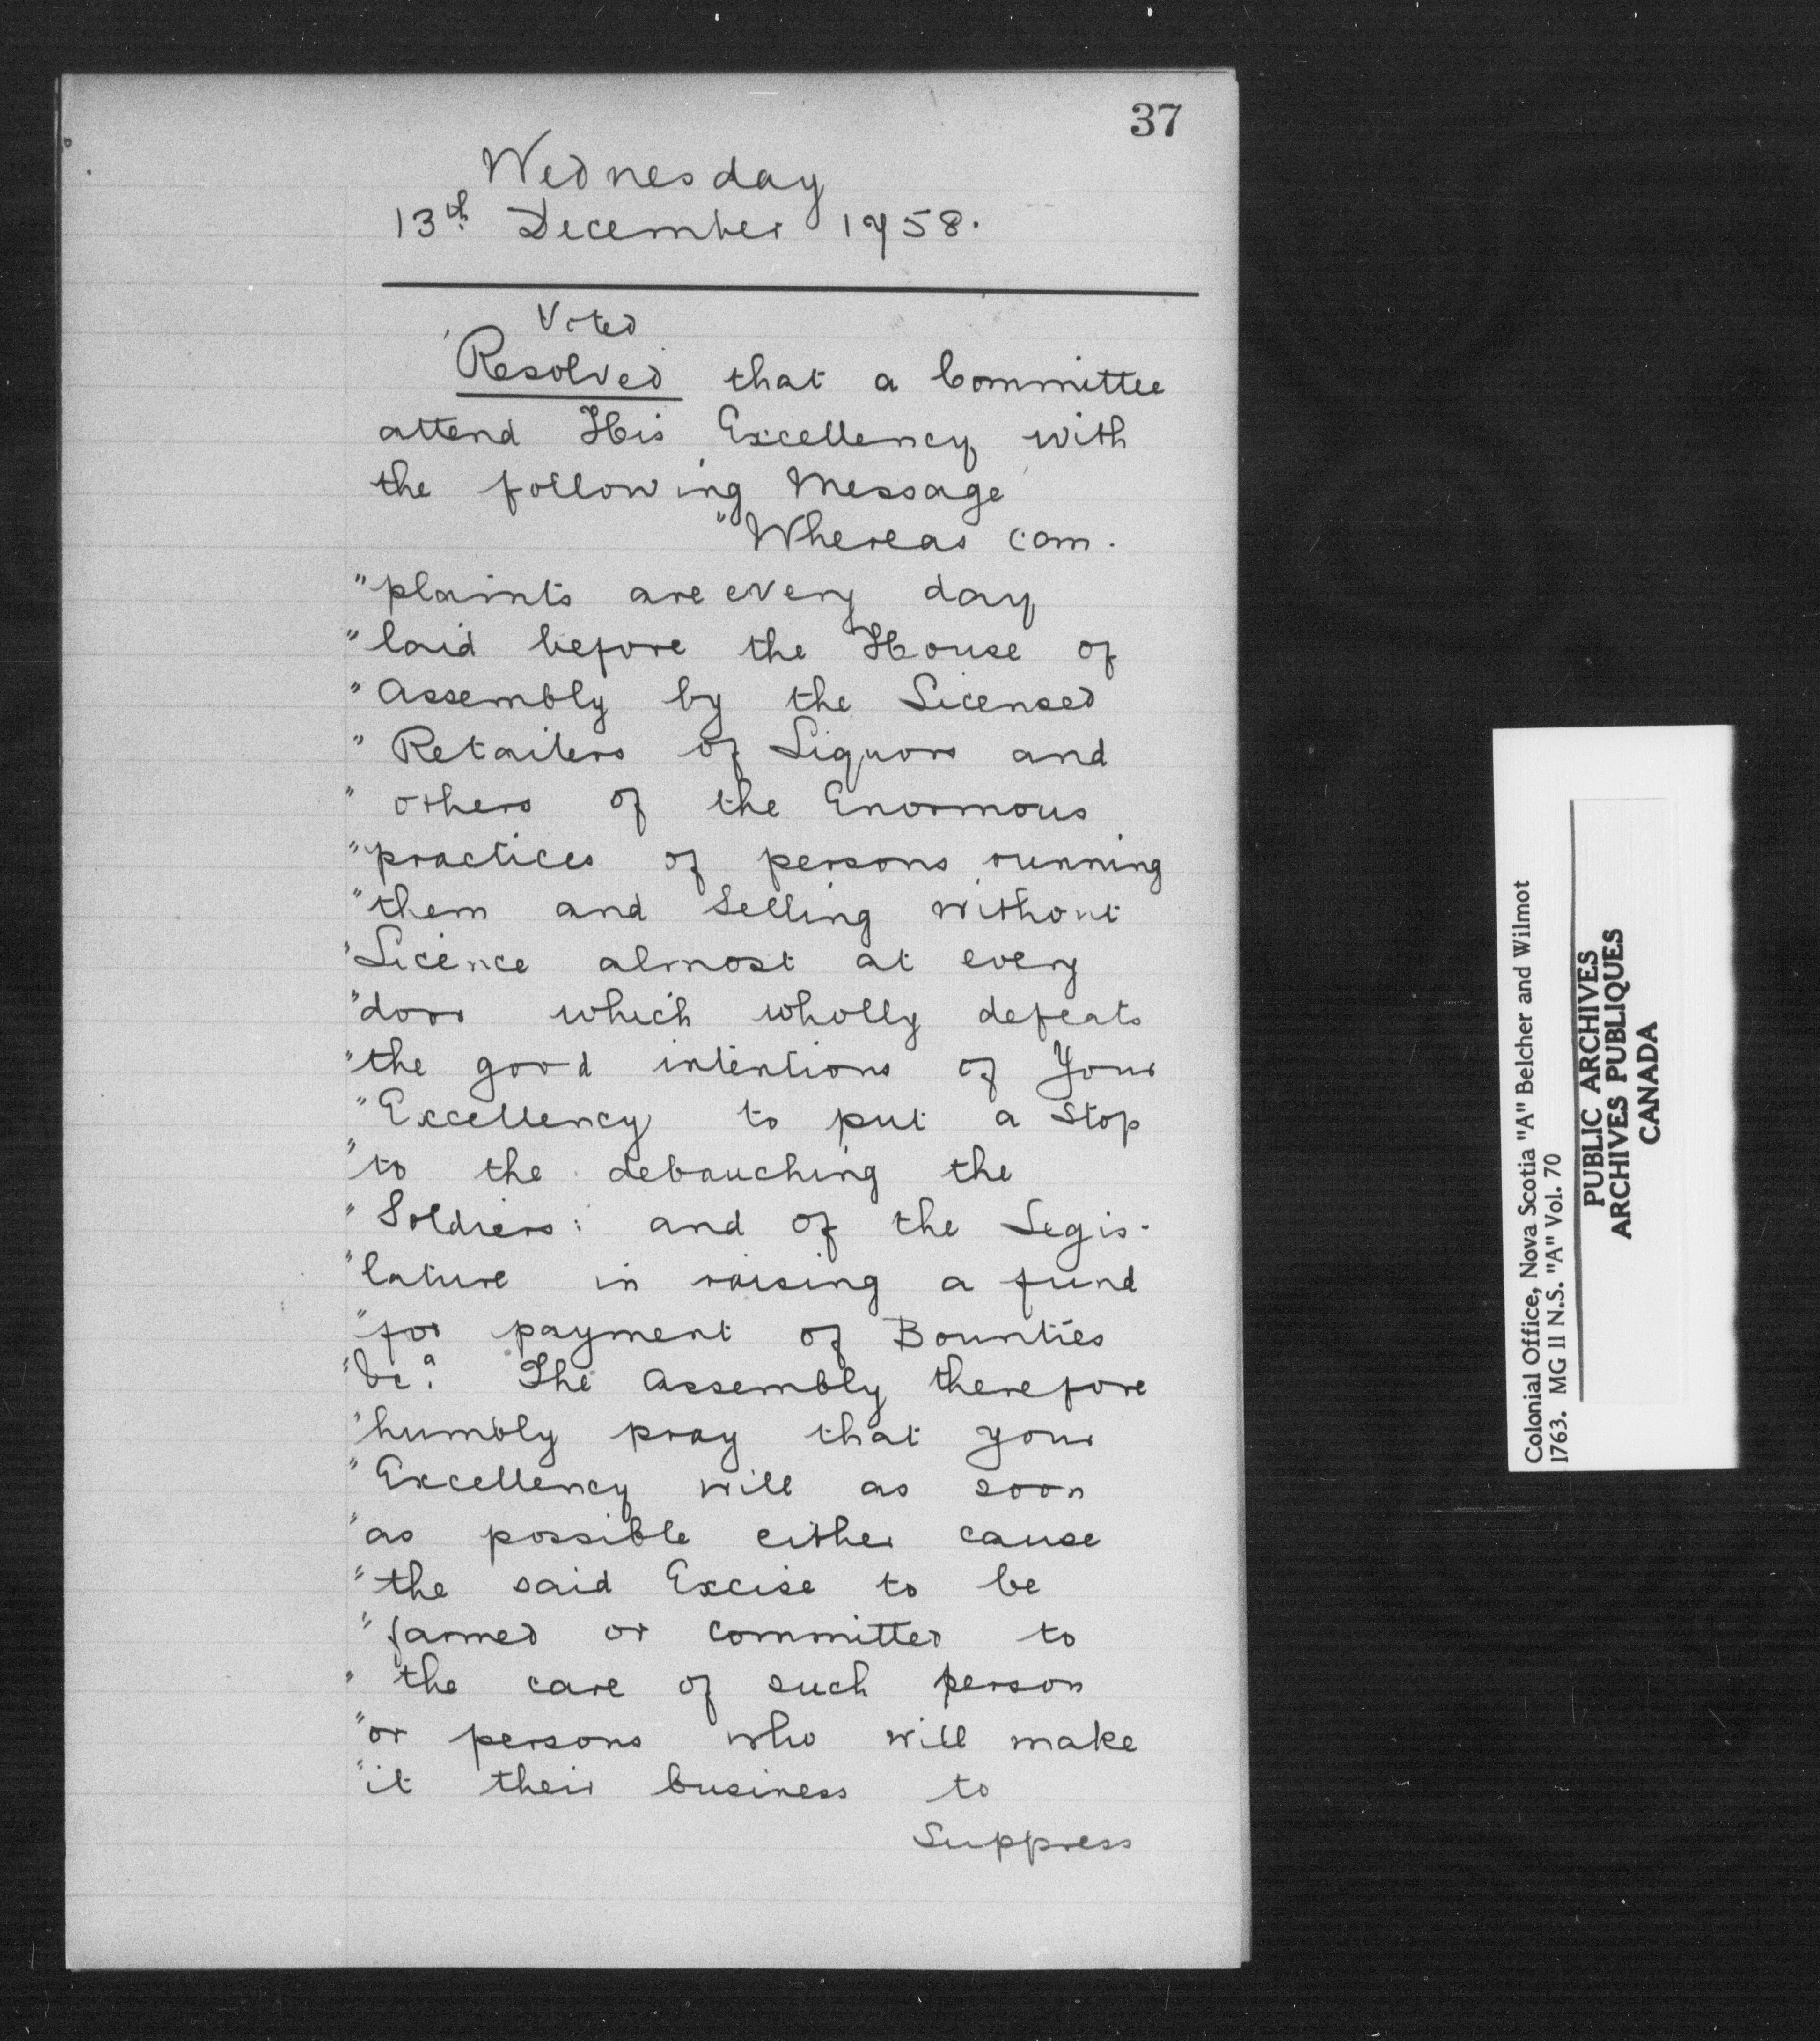 37
Wednesday
13th December 1758.
Voted
Resolved that a Committee
attend His Excellency with
the following Message
"Whereas com.
"plaints are every day
"laid before the House of
"Assembly by the Licensed
"Retailers of Liquors and
"others of the Enormous
"practices of persons running
"them and Selling without
"Licence almost at every
"door which wholly defeats
"the good intentions of Your
"Excellency to put a Stop
"to the debauching the
"Soldiers: and of the Legis-
"lature in raising a fund
"for payment of Bounties
"&ca. The Assembly therefore
"humbly pray that your
"Excellency will as soon
"as possible either cause
"the said Excise to be
"farmed or committed to
"the care of such person
"or persons who will make
"it their business to
Suppress
Colonial Office, Nova Scotia "A" Belcher and Wilmot
1763. MG II N.S. "A" Vol. 70
PUBLIC ARCHIVES
ARCHIVES PUBLIQUES
CANADA